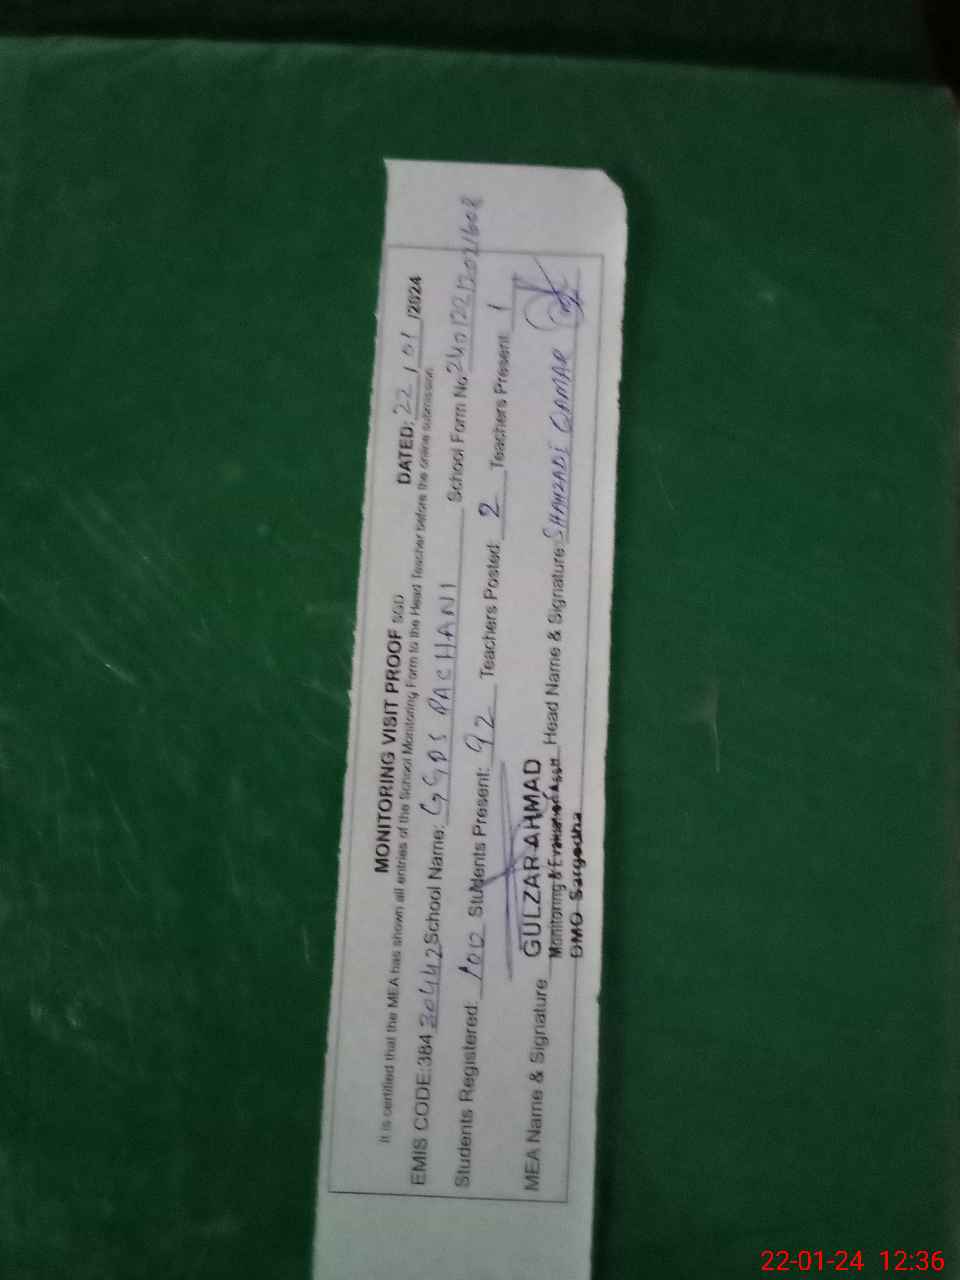 MONITORING VISIT PROOF SGD DATED: 22/01/2024
It is certified that the MEA has shown all entries of the School Monitoring Form to the Head Teacher before the online submission.
EMIS CODE:384 30442 School Name: GGPS PACHANI School Form No 24012212021608
Students Registered: 100 Students Present: 92 Teachers Posted: 2 Teachers Present: 1
MEA Name & Signature GULZAR AHMAD Head Name & Signature: SHAHZADI QAMAR
Monitoring & Evaluation Asstt
DMO Sargodha
22-01-24 12:36